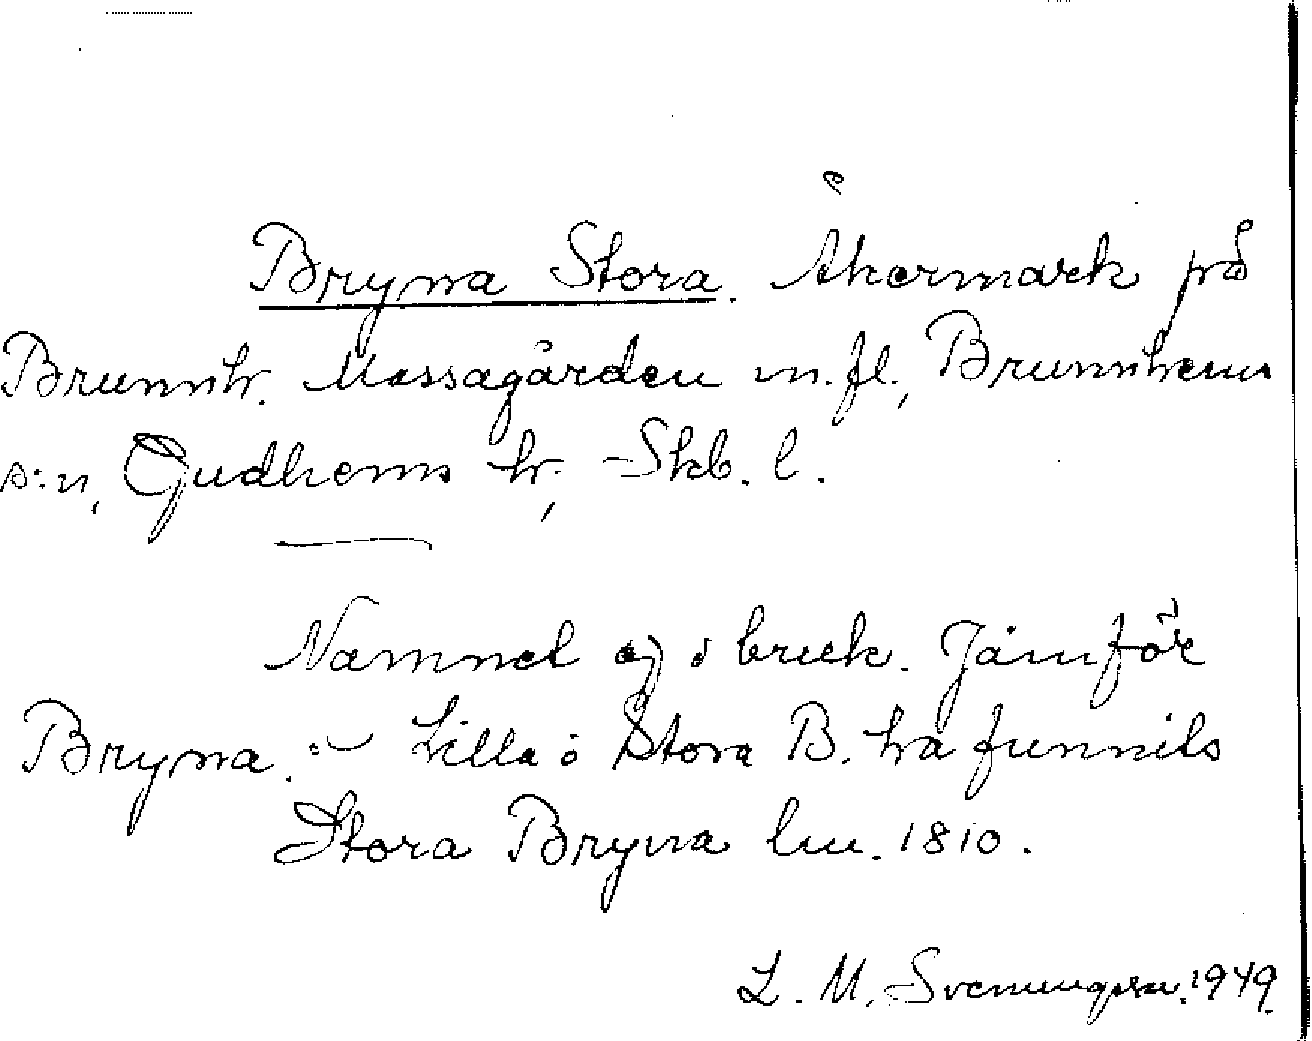 Bryna Stora. Åkermark på
Brunnh. Massagården m. fl., Brunnhems
s:n, Gudhems hr, Skb. l.
Namnet ej i bruk. Jämför
Bryna. Lilla o Stora B. ha funnits
Stora Bryna lm. 1810.
L. M. Svenungsson. 1949.